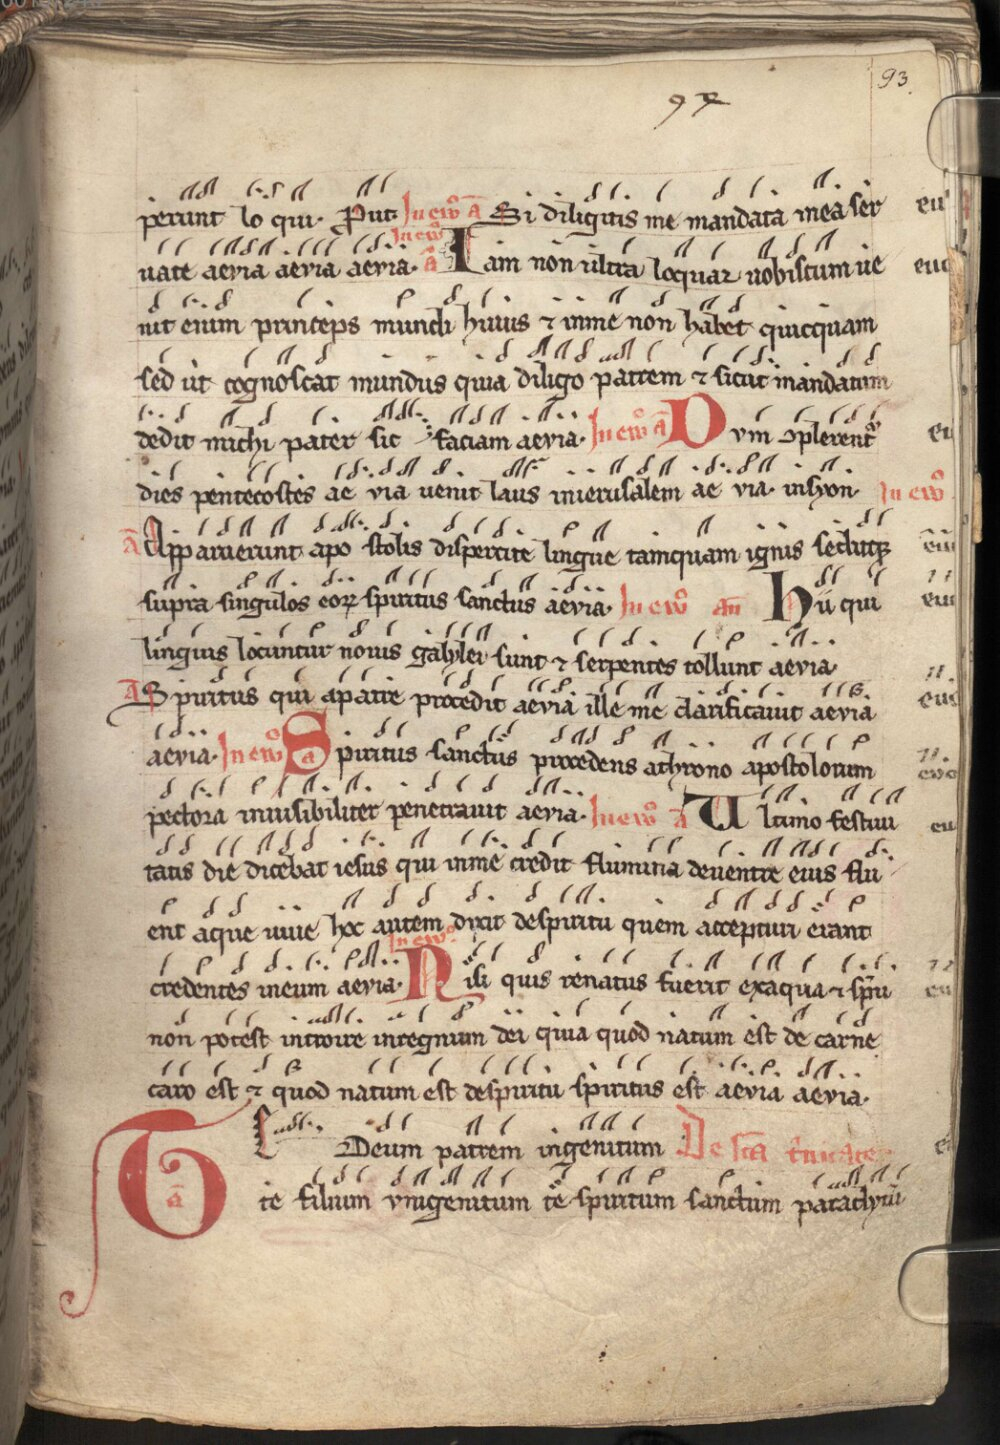 93
97
perunt lo qui. Put In ewō ā Si diligitis me mandata mea ser eu
uate aevia aevia aevia. In ewō ā Iam non ultra loquar uobiscum ue euo
nit enim princeps mundi huius ⁊ inme non habet quicquam
sed ut cognoscat mundus quia diligo patrem ⁊ sicut mandatum
dedit michi pater sic faciam aevia. In ewō ā Dum ɔplerent᷑ eu
dies pentecostes ae via uenit laus inierusalem ae via. insyon. In ewō
ā Apparuerunt apo stolis dispertite lingue tamquam ignis seditq;
supra singulos eoꝝ spiritus sanctus aevia. In ewō an Hii qui
linguis locuntur nouis galylei sunt ⁊ serpentes tollunt aevia.
A Spiritus qui apatre procedit aevia ille me clarificauit aevia
aevia. In ewō ā Spiritus sanctus procedens athrono apostolorum
pectora inuisibiliter penetrauit aevia. In ewō ā Ultimo festiui
tatis die dicebat iesus qui inme credit flumina deuentre eius flu
ent aque uiue hoc autem dixit despiritu quem accepturi erant
credentes ineum aevia. In ewō Nisi quis renatus fuerit exaqua ⁊ spū
non potest introire inregnum dei quia quod natum est de carne
caro est ⁊ quod natum est despiritu spiritus est aevia aevia.
Te Deum patrem ingenitum De scā trinitate
ā te filium vnigenitum te spiritum sanctum paraclytū